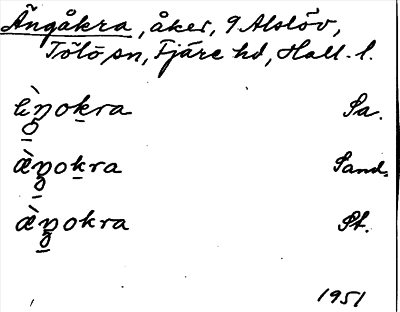 Ängåkra, åker, 9 Alslöv,
Tölö sn, Fjäre hd, Hall. l.
ὲŋokra Sa.
æ̀ŋokra Sand.
æ̀ŋokra St.
1951